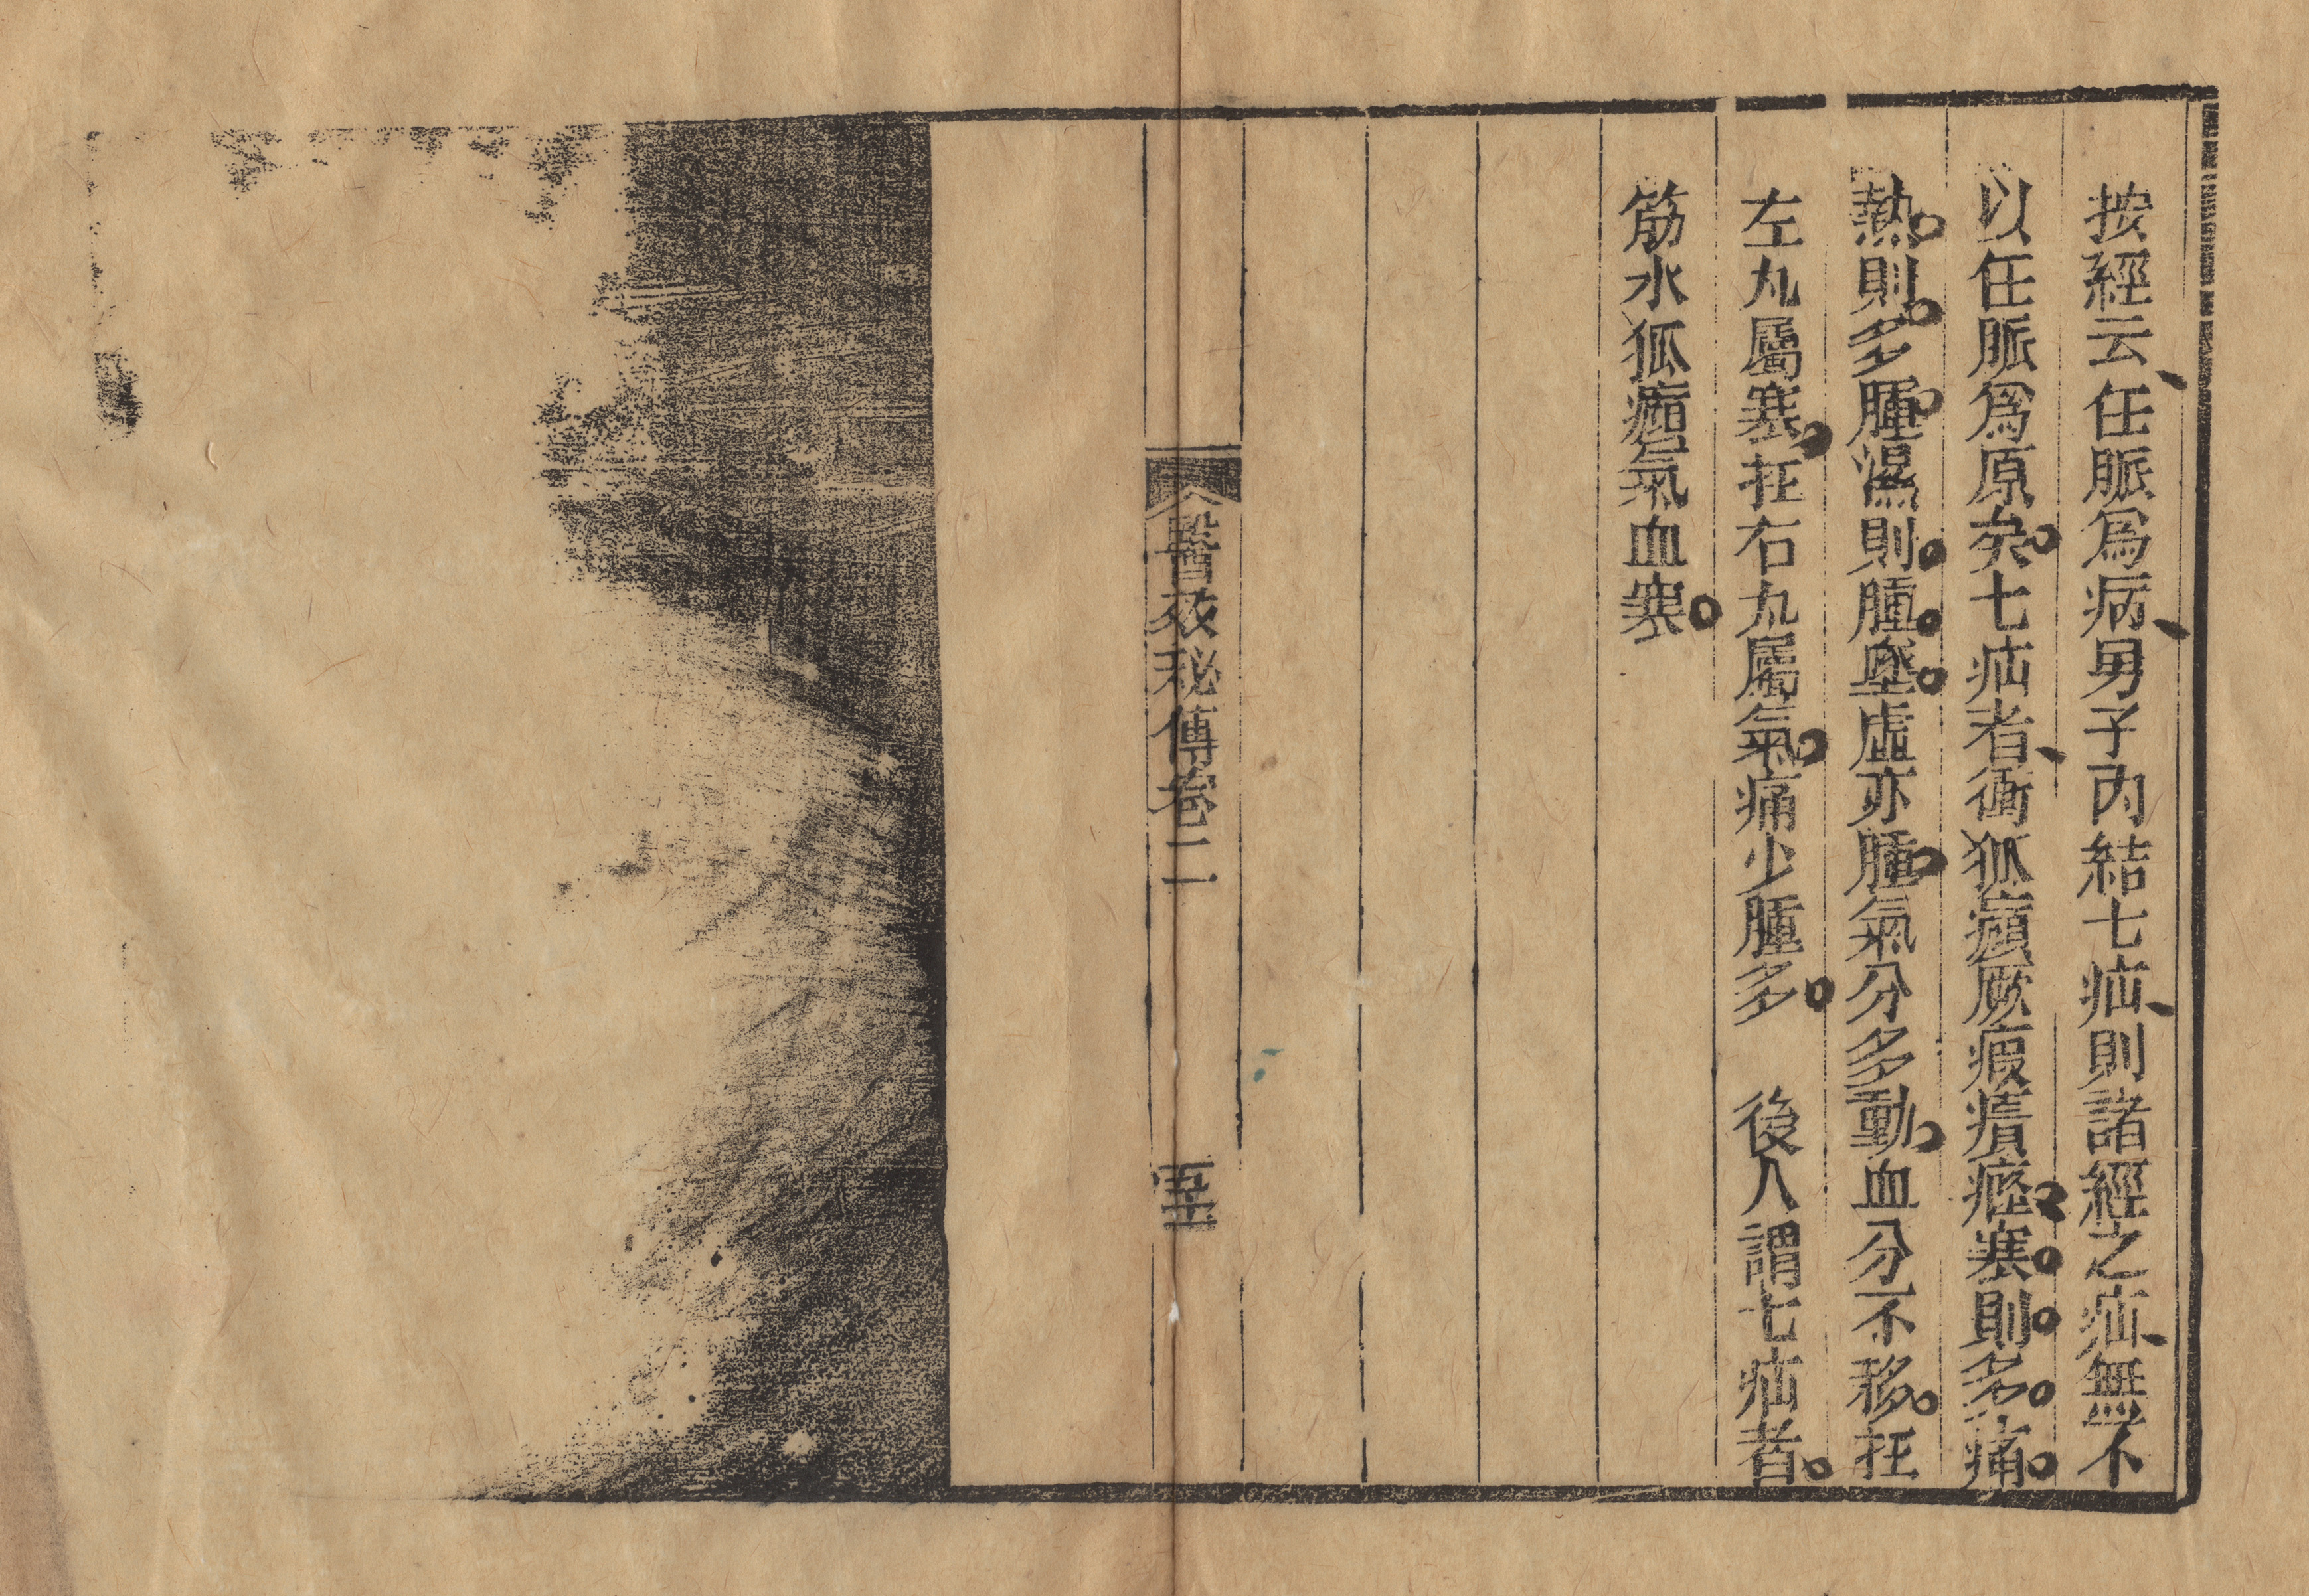 按經云任脈爲病男子內結七疝則諸經之疝無不
以任脈爲原矣七疝者衝狐㿗厥瘕㿉癃寒則多痛
熱則多腫濕則腫墜虛亦腫氣分多動血分不移在
左丸屬寒在右丸屬氣痛少腫多 後人謂七疝者
筋水狐㿗氣血寒
醫效秘傳卷二